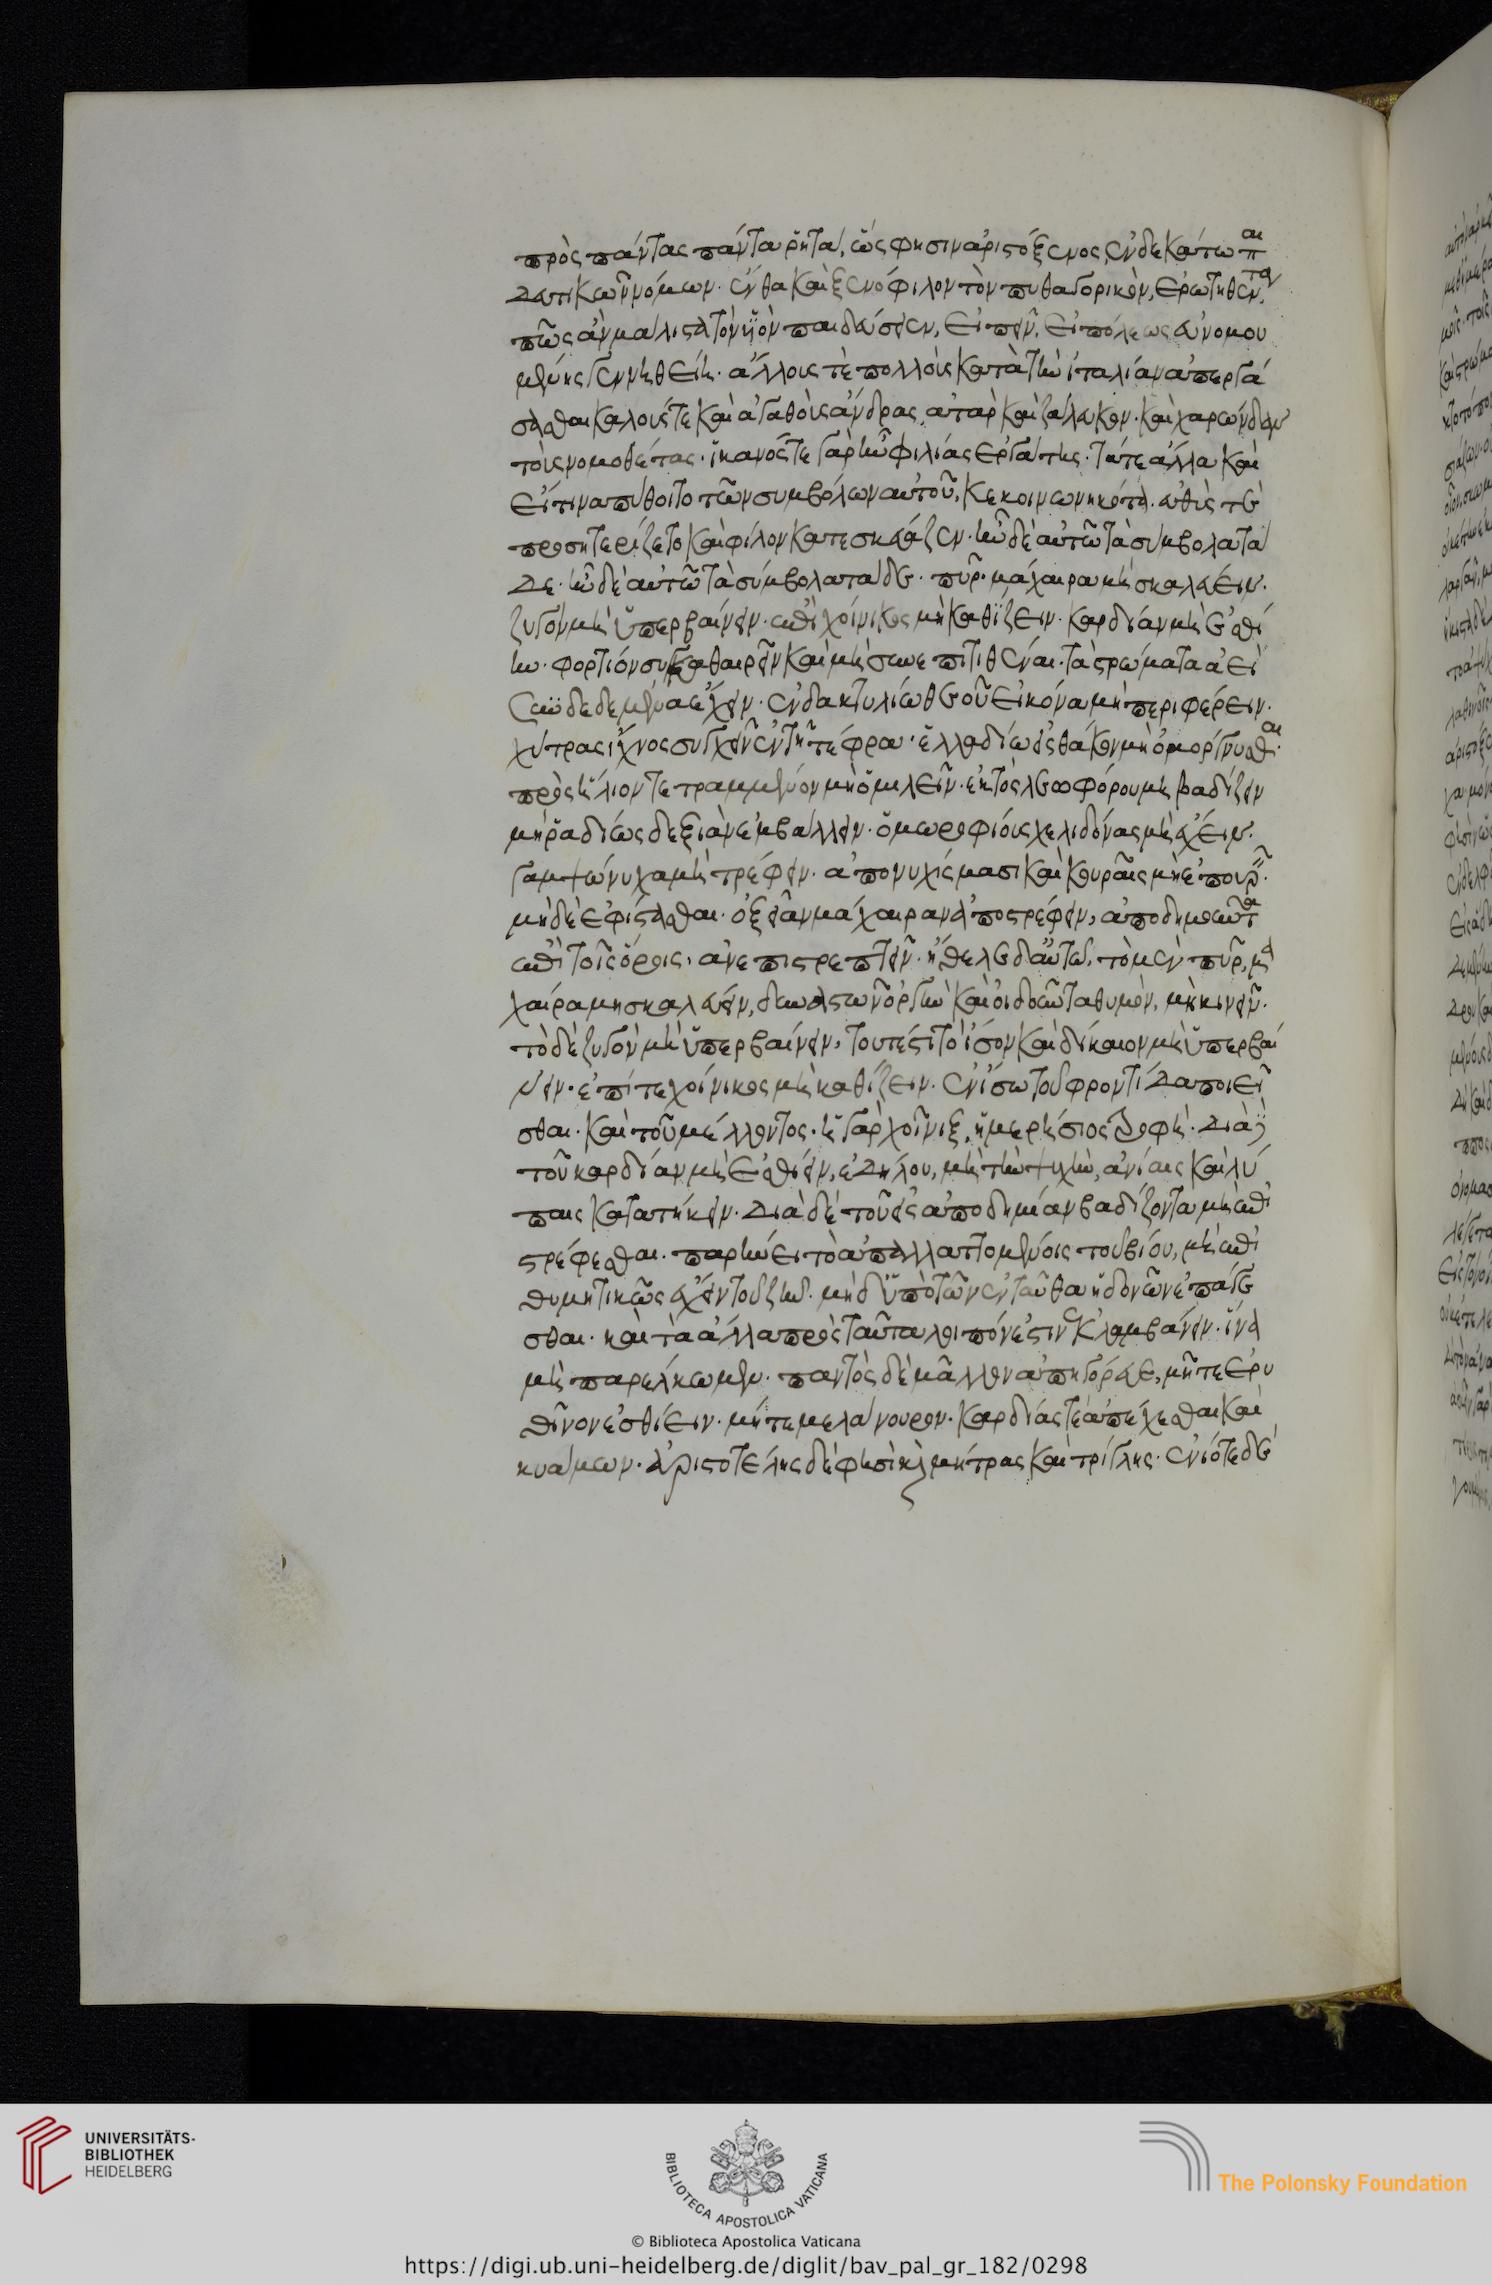 πρὸς πάντας πάντα ῥητά, ὥς φησιν ἀριστόξενος, ἐν δεκάτω παι
δευτικῶν νόμων. ἔνθα καὶ ξενόφιλον τὸν πυθαγορικὸν, ἐρωτηθέντα,
πῶς ἂν μάλιστα τὸν ϋἱὸν παιδεύσειεν, εἰπεῖν, εἰ πόλεως εὐνομου
μένης γεννηθείη. ἄλλους τὲ πολλοὺς κατὰ τὴν ἰταλίαν ἀπεργά
σασθαι καλούς τε καὶ ἀγαθοὺς ἄνδρας, ἀτὰρ καὶ ζάλευκον. καὶ χαρώνδαν
τοὺς νομοθέτας. ἱκανός τε γὰρ ἦν φιλίας ἐργάτης. τά τε ἄλλα καὶ
εἴ τινα πύθοιτο τῶν συμβόλων αὐτοῦ, κεκοινωνηκότα. εὐθύς τε
προσηταιρίζετο καὶ φίλον κατεσκεύαζεν. ἦν δὲ αὐτῶ τὰ σύμβολα τά
δε. ἦν δὲ αὐτῶ τὰ σύμβολα τάδε. πῦρ μαχαίρα μὴ σκαλεύειν.
ζυγὸν μὴ ὑπερβαίνειν. ἐπὶ χοίνικος μὴ καθίζειν. καρδίαν μὴ ἐσθί
ειν. φορτίον συγκαθαιρεῖν καὶ μὴ συνεπιτιθέναι. τὰ στρώματα ἀεὶ
συνδεδεμένα ἔχειν. ἐν δακτυλίω θεοῦ εἰκόνα μὴ περιφέρειν.
χύτρας ἴχνος συγχεῖν ἐν τῆ τέφρα. ἐλλαδίω εἰς θάκον μὴ ὀμόργνυσθαι.
πρὸς ἥλιον τετραμμένον μὴ ὁμιλεῖν. ἐκτὸς λεωφόρου μὴ βαδίζειν
μὴ ῥαδίως δεξιὰν ἐμβάλλειν. ὁμωροφίους χελιδόνας μὴ ἔχειν.
γαμψώνυχα μὴ τρέφειν. ἀπονυχίσμασι καὶ κουραῖς μὴ ἐπουρεῖν.
μηδὲ ἐφίστασθαι. ὀξεῖαν μάχαιραν ἀποστρέφειν, ἀποδημοῦντα
ἐπὶ τοῖς ὅροις. ἀνεπιστρεπτεῖν. ἤθελε δ' αὐτῶ. τὸ μὲν πῦρ, μα
χαίρα μὴ σκαλεύειν, δυναστῶν ὀργὴν καὶ οἰδοῦντα θυμὸν, μὴ κινεῖν.
τὸ δὲ ζυγὸν μὴ ὑπερβαίνειν, τουτέστι τὸ ἴσον καὶ δίκαιον μὴ ὑπερβαί
νειν. ἐπί τε χοίνικος μὴ καθίζειν. ἐν ἴσω τοῦ φροντίδα ποιεῖ
σθαι. καὶ τοῦ μέλλοντος. ἡ γὰρ χοῖνιξ, ἡμερήσιος τροφή. διὰ
τοῦ καρδίαν μὴ ἐσθίειν, ἐδήλου, μὴ τὴν ψυχὴν, ἀνίαις καὶ λύ
παις κατατήκειν. διὰ δὲ τοῦ εἰς ἀποδημίαν βαδίζοντα μὴ ἐπι
στρέφεσθαι. παρήνει τὸ ἀπαλλαττομένοις τοῦ βίου, μὴ ἐπι
θυμητικῶς ἔχειν τοῦ ζῆν. μηδ' ὑπὸ τῶν ἐνταῦθα ἡδονῶν ἐπάγε
σθαι. καὶ τὰ ἄλλα πρὸς ταῦτα λοιπόν ἐστιν ἐκλαμβάνειν. ἵνα
μὴ παρέλκωμεν. παντὸς δὲ μᾶλλον ἀπηγόρευε, μήτε ἐρυ
θῖνον ἐσθίειν. μήτε μελάνουρον. καρδίας τε ἀπέχεσθαι καὶ
κυάμων. ἀριστοτέλης δέ φησὶ καὶ μήτρας καὶ τρίγλης. ἐνίοτε δὲ
UNIVERSITÄTS-
BIBLIOTHEK
HEIDELBERG
BIBLIOTECA APOSTOLICA VATICANA
The Polonsky Foundation
© Biblioteca Apostolica Vaticana
https://digi.ub.uni-heidelberg.de/diglit/bav_pal_gr_182/0298